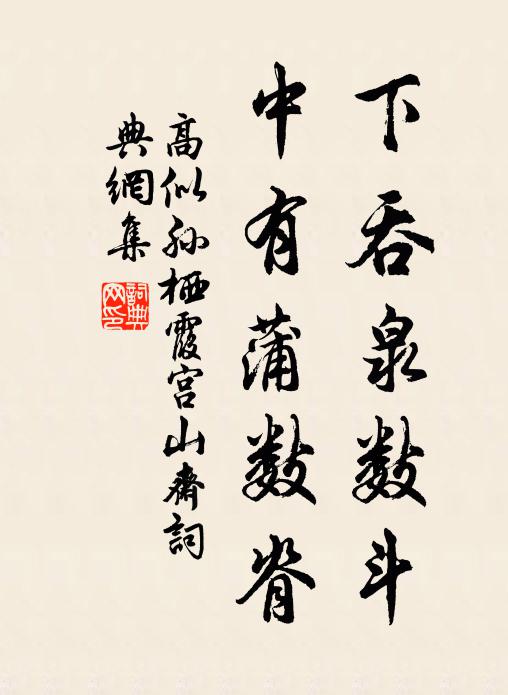 下吞泉数斗
中有蒲数脊
高似孙栖霞宫山斋詞
典網集
詞典网印